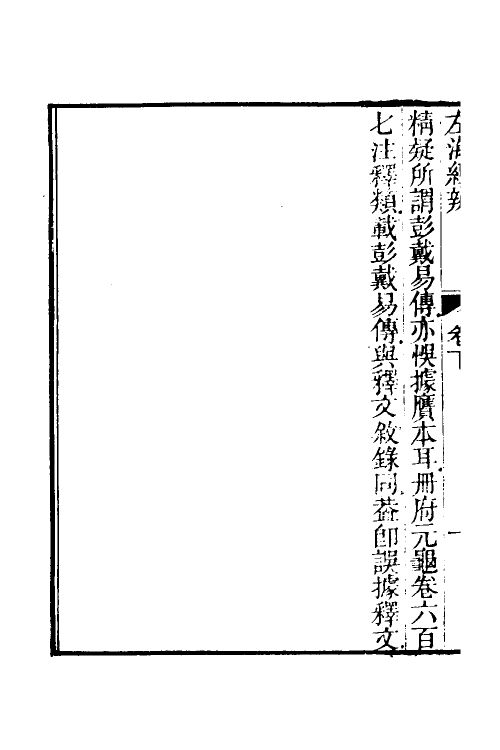 左海經辨 卷下 一
精疑所謂彭戴易傳亦悞據贗本耳冊府元龜卷六百
七注釋類載彭戴易傳與釋文敘錄同葢卽誤據釋文